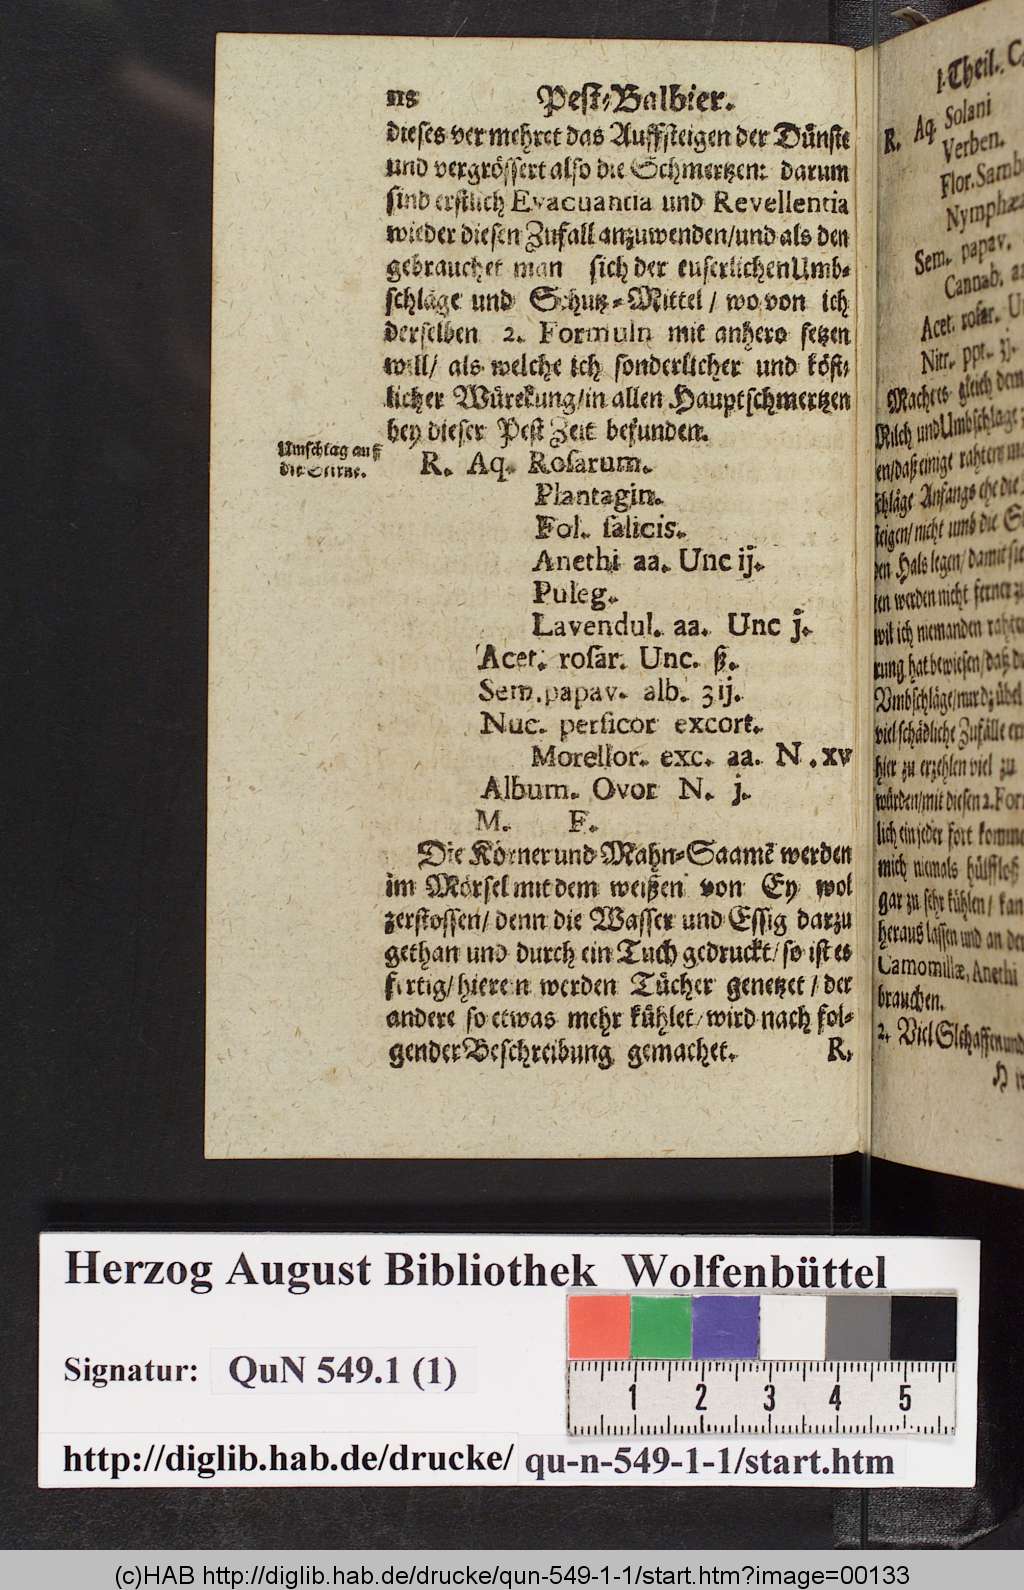 118 Pest-Balbier.
dieses vermehret das Auffsteigen der Dünste
und vergrössert also die Schmertzen: darum
sind erstlich Evacuantia und Revellentia
wieder diesen Zufall anzuwenden/und als den
gebrauchet man sich der euserlichen Umb-
schläge und Schutz-Mittel / wovon ich
derselben 2. Formuln mit anhero setzen
will/ als welche ich sonderlicher und köst-
licher Würckung/in allen Hauptschmertzen
bey dieser Pest Zeit befunden.
Umschlag auff
die Stirne.
R. Aq. Rosarum.
Plantagin.
Fol. salicis.
Anethi aa. Unc ij.
Puleg.
Lavendul. aa. Unc j.
Acet. rosar. Unc. ß.
Sem. papav. alb. ʒij.
Nuc. persicor excort.
Morellor. exc. aa. N. xv
Album. Ovor N. j.
M. F.
Die Körner und Mahn-Saamē werden
im Mörsel mit dem weißen von Ey wol
zerstossen/ denn die Wasser und Essig darzu
gethan und durch ein Tuch gedruckt/ so ist es
fertig/ hierein werden Tücher genetzet / der
andere so etwas mehr kühlet/ wird nach fol-
gender Beschreibung gemachet. R.
I. Theil. C
R. Aq. Solani
Verben.
Flor. Samb
Nymphæ
Sem. papav.
Cannab. a
Acet. rosar. U
Nitr. ppt. ʒj.
Machets gleich dem
Milch und Umbschläge
en/daß einige
schläge Anfangs ehe die
steigen/ nicht umb die
den Hals legen/ damit sie
werden nicht ferner
wil ich niemanden
rung hat bewiesen/ daß
Umbschläge/ nur dz übel
viel schädliche Zufälle
hier zu erzehlen viel zu
würden/mit diesen 2. For
lich ein jeder fort komme
mich niemals hülffloß
gar zu sehr kühlen/ kan
heraus lassen und an der
Camomillæ, Anethi
brauchen.
2. Viel Schaffen und
H
Herzog August Bibliothek Wolfenbüttel
Signatur: QuN 549.1 (1)
1 2 3 4 5
http://diglib.hab.de/drucke/ qu-n-549-1-1/start.htm
(c)HAB http://diglib.hab.de/drucke/qun-549-1-1/start.htm?image=00133